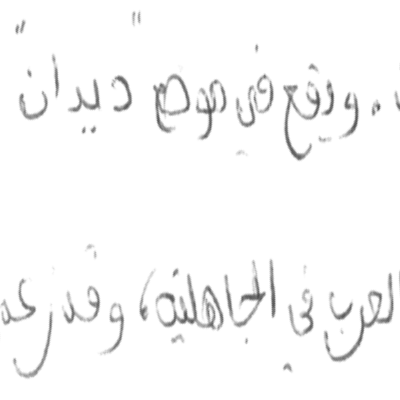 . ويقع في موضع "ديدان"
العرب في الجاهلية، وقد زعم